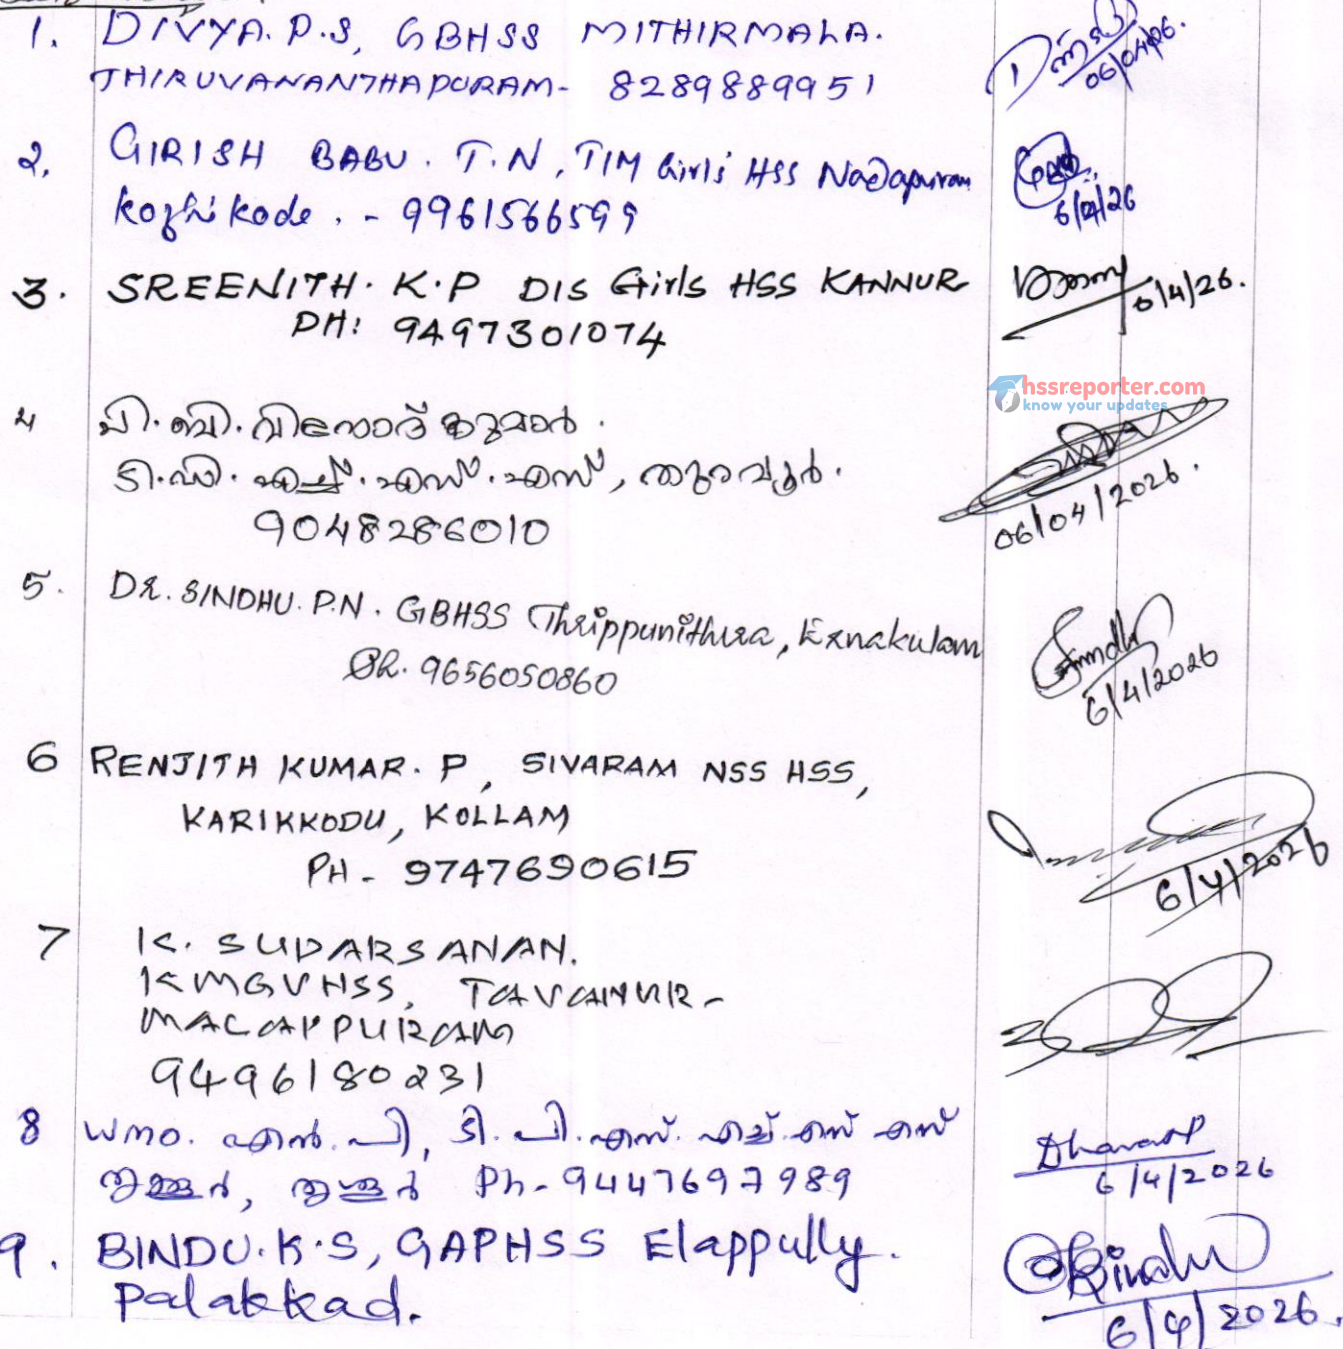 1. DIVYA. P.S, GBHSS MITHIRMALA.
THIRUVANANTHAPURAM- 8289889951
06/04/26.
2. GIRISH BABU. T.N, TIM Girls' HSS Nadapuram
Kozhikode. - 9961566599
6/4/26
3. SREENITH. K.P DIS Girls HSS KANNUR
PH: 9497301074
6/4/26.
hssreporter.com
know your updates
4 പി. ബി. വിനോദ് കുമാർ.
ടി.ഡി. എച്ച്. എസ്. എസ്, തുറവൂർ.
9048286010
06/04/2026.
5. DR. SINDHU. P.N. GBHSS Thrippunithura, Ernakulam
Ph. 9656050860
Sindhu
6/4/2026
6 RENJITH KUMAR. P, SIVARAM NSS HSS,
KARIKKODU, KOLLAM
PH- 9747690615
6/4/2026
7 K. SUDARSANAN.
KMGVHSS, TAVANUR-
MALAPPURAM
9496180231
8 ധന്യ. എൻ. പി, ടി. പി. എസ്. എച്ച്. എസ് എസ്
തൃക്കൂർ, തൃശ്ശൂർ Ph-9447697989
6/4/2026
9. BINDU. K.S, GAPHSS Elappully.
Palakkad.
Bindu
6/4/2026.